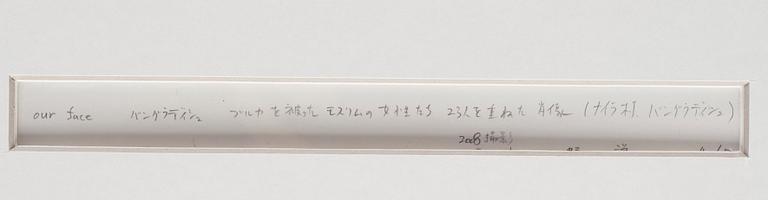 our face バングラデイシュ ブルカを被ったモスリムの女性たち 23人を重ねた肖像 (ナイラ村、バングラデイシュ)
2008 撮影